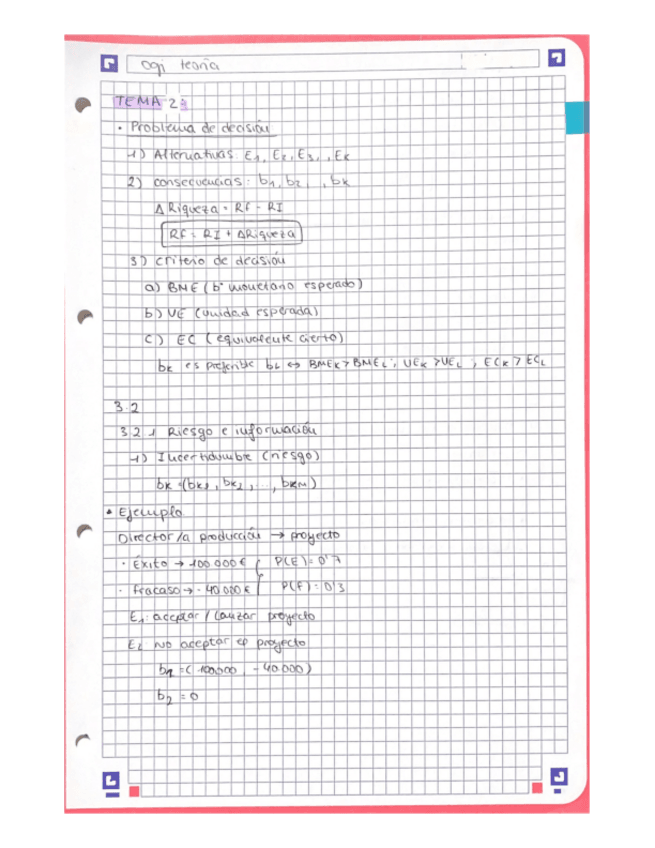 ogi teoria
TEMA 2:
• Problema de decisión
1) Alternativas: E1, E2, E3, , EK
2) consecuencias: b1, b2, , bk
Δ Riqueza = Rf - RI
Rf = RI + ΔRiqueza
3) criterio de decisión
a) BME (bº monetario esperado)
b) UE (unidad esperada)
c) EC (equivalente cierto)
bk es preferible bL ↔ BMEK > BMEL ; UEK > UEL ; ECK > ECL
3.2
3.2.1 Riesgo e información
1) Incertidumbre (riesgo)
bk = (bk1, bk2, ..., bkM)
• Ejemplo
Director/a producción → proyecto
· Éxito → 100 000 € P(E) = 0'7
· Fracaso → - 40.000 € P(F) = 0'3
E1: aceptar / lanzar proyecto
E2 no aceptar el proyecto
b1 = ( 100.000 , - 40.000 )
b2 = 0